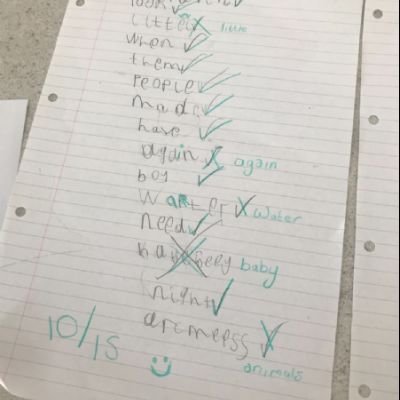 litte little
when
them
People
made
have
again again
boy
Warter water
need
baby
night
animals
10/15